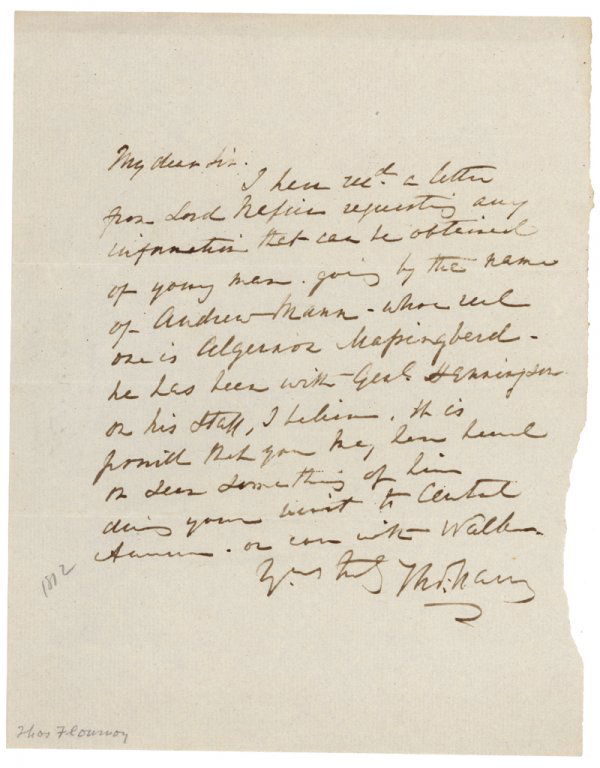 My dear Sir.
I have recd. a letter
from Lord Napier requesting any
information that can be obtained
of young man. going by the name
of Andrew Mann - whose real
one is Algernon Massingberd -
he has been with Genl. Henningsen
on his Staff, I believe. It is
possible that you may have heard
or seen something of him
during your visit to Central
America. or con with Walker
Yrs truly Tho.
1812
Thos Flournoy